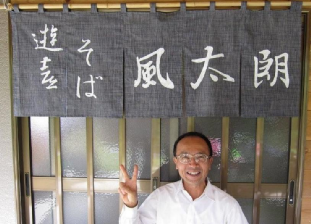 遊喜
そば
風太朗